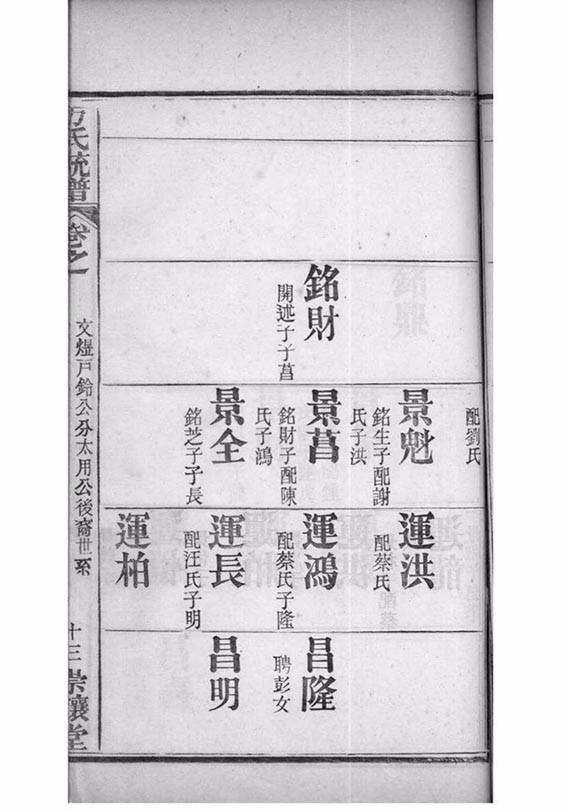 銘財
開述子子菖
配劉氏
景魁
銘生子配謝
氏子洪
景菖
銘財子配陳
氏子鴻
景全
銘芝子子長
運洪
配蔡氏
運鴻
配蔡氏子隆
運長
配汪氏子明
運柏
昌隆
聘彭女
昌明
方氏統譜
卷之一
文煜戸鈴公分太用公後裔世系
十三
崇讓堂